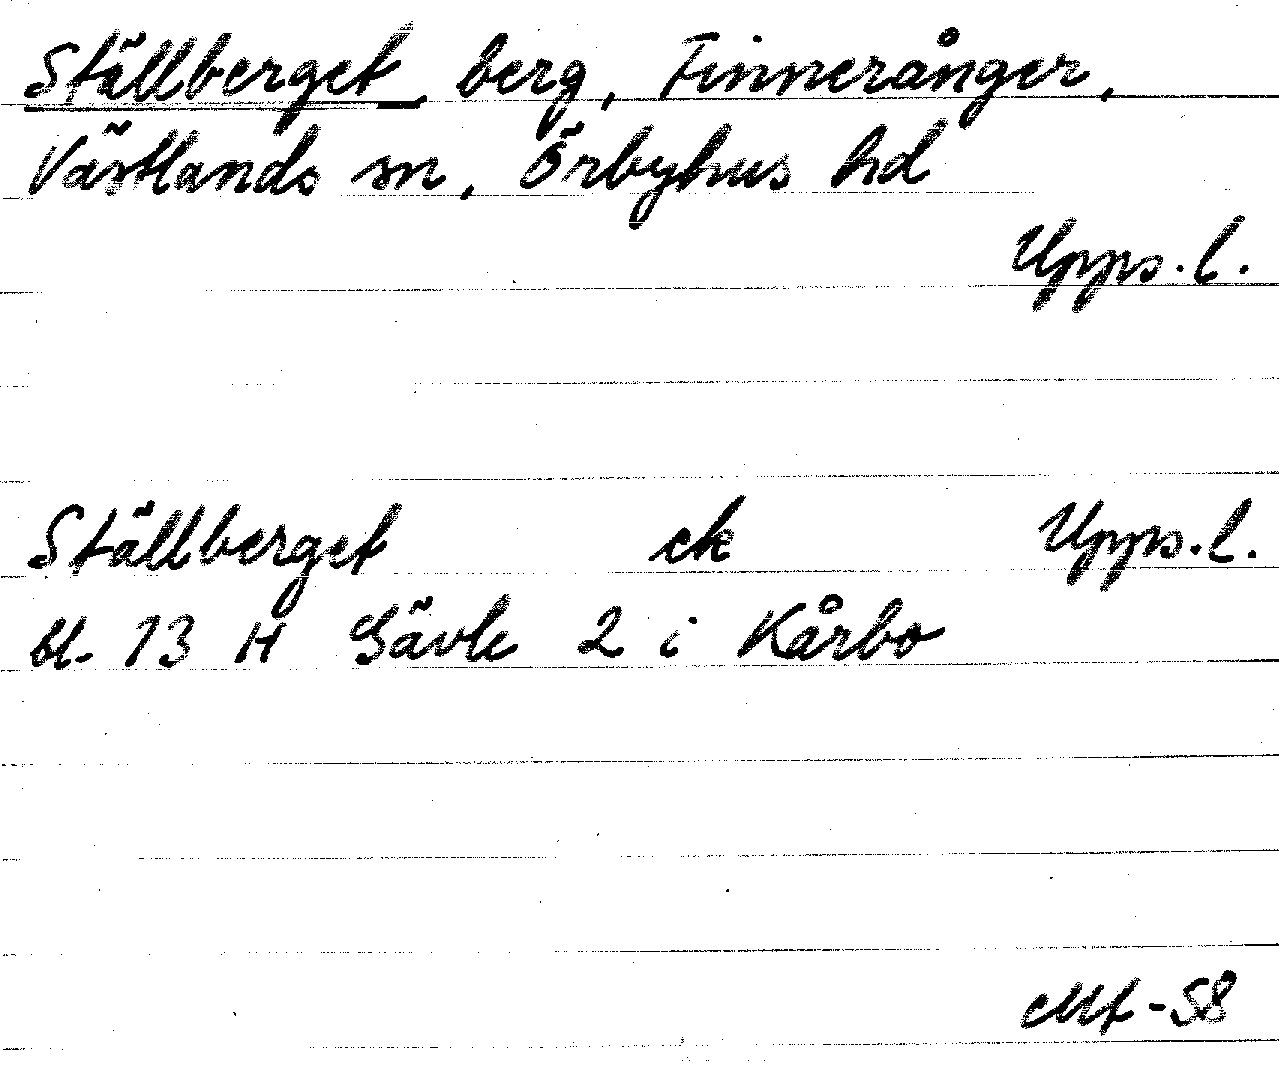 Ställberget, berg, Finneränger,
Västlands sn, Örbyhus hd
Upps.l.
Ställberget ek Upps.l.
bl. 13 H Gävle 2 i Kårbo
-58